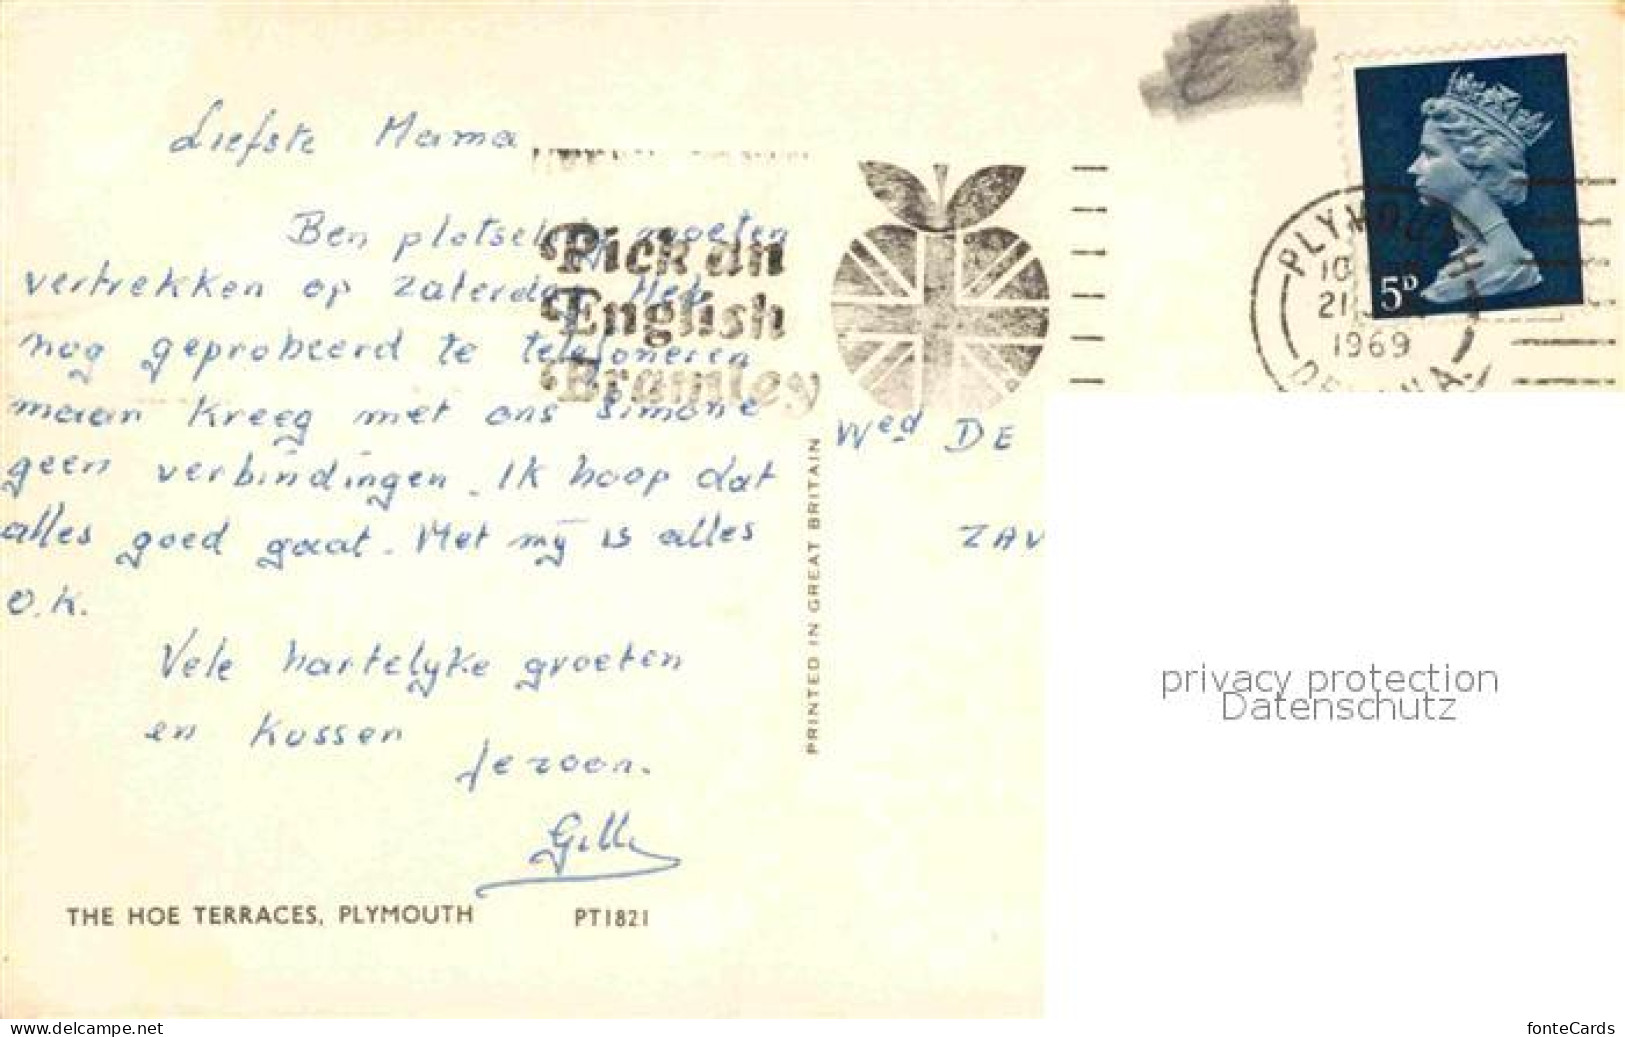 Liefste Mama
Ben plotseling moeten
vertrekken op zaterdag Heb
nog geprobeerd te telefoneren
maar kreeg met ons Simone
geen verbindingen. Ik hoop dat
alles goed gaat. Met mij is alles
O.K.
Vele hartelijke groeten
en kussen
Jeroon.
THE HOE TERRACES, PLYMOUTH PT1821
Pick an
English
Bramley
PRINTED IN GREAT BRITAIN
PLYMOUTH
10
21
1969
5D
Wed DE
ZAV
privacy protection
Datenschutz
www.delcampe.net
fonteCards